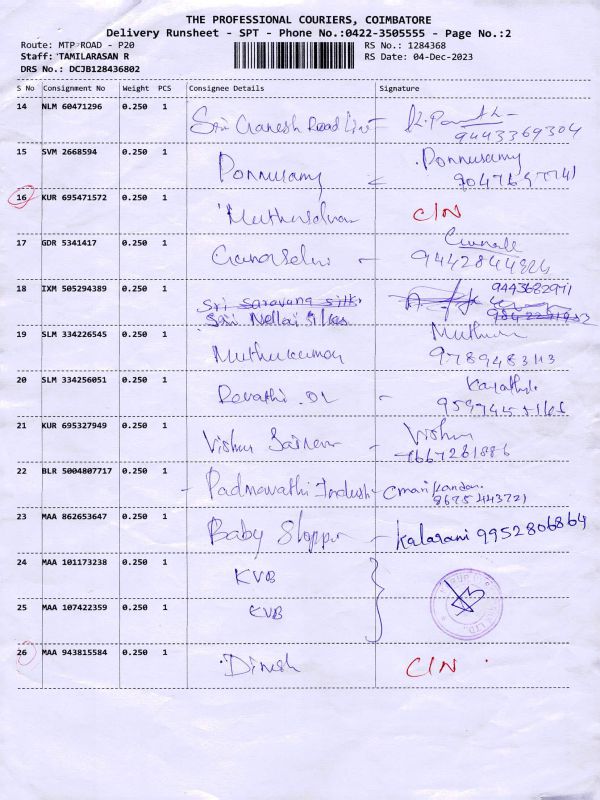 THE PROFESSIONAL COURIERS, COIMBATORE
Delivery Runsheet - SPT - Phone No.:0422-3505555 - Page No.:2
Route: MTP ROAD - P20 RS No.: 1284368
Staff: TAMILARASAN R RS Date: 04-Dec-2023
DRS No.: DCJB128436802
S No Consignment No Weight PCS Consignee Details Signature
14 NLM 60471296 0.250 1
Sri Ganesh Road Line
9443369304
15 SVM 2668594 0.250 1 Ponnusamy
Ponnusamy
16 KUR 695471572 0.250 1
Muthuselvan C/N
17 GDR 5341417 0.250 1
Gunaselvi 9442844824
18 IXM 505294389 0.250 1 9443682971
Sri Saravana Silk.
Sri Nellai Silks
19 SLM 334226545 0.250 1
Muthukumar 9789483113
20 SLM 334256051 0.250 1
Revathi
21 KUR 695327949 0.250 1 Vishnu
Vishnu 7667261886
22 BLR 5004807717 0.250 1
Padmavathi Indust
8695443721
23 MAA 862653647 0.250 1
Baby Shoppe Kalarani 9952806864
24 MAA 101173238 0.250 1
KVB
25 MAA 107422359 0.250 1 KVB
26 MAA 943815584 0.250 1
Dinesh C/N